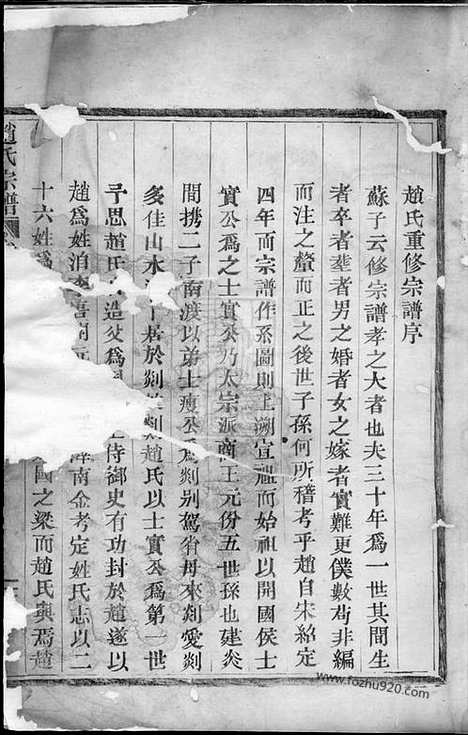 趙氏重修宗譜序
蘇子云修宗譜孝之大者也夫三十年爲一世其間生
者卒者塟者男之婚者女之嫁者實難更僕數苟非編
而注之釐而正之後世子孫何所稽考乎趙自宋紹定
四年而宗譜作系圖則上溯宣祖而始祖以開國侯士
實公爲之士實公乃太宗派商王元份五世孫也建炎
間携二子南渡以弟士瘦公爲剡别駕省母來剡愛剡
多佳山水 卜居於剡 剡趙氏以士實公爲第一世
予思趙氏 造父爲 侍御史有功封於趙遂以
趙爲姓洎李 南金考定姓氏志以二
十六姓爲 國之梁而趙氏與焉趙
趙氏宗譜
www.fozhu920.com